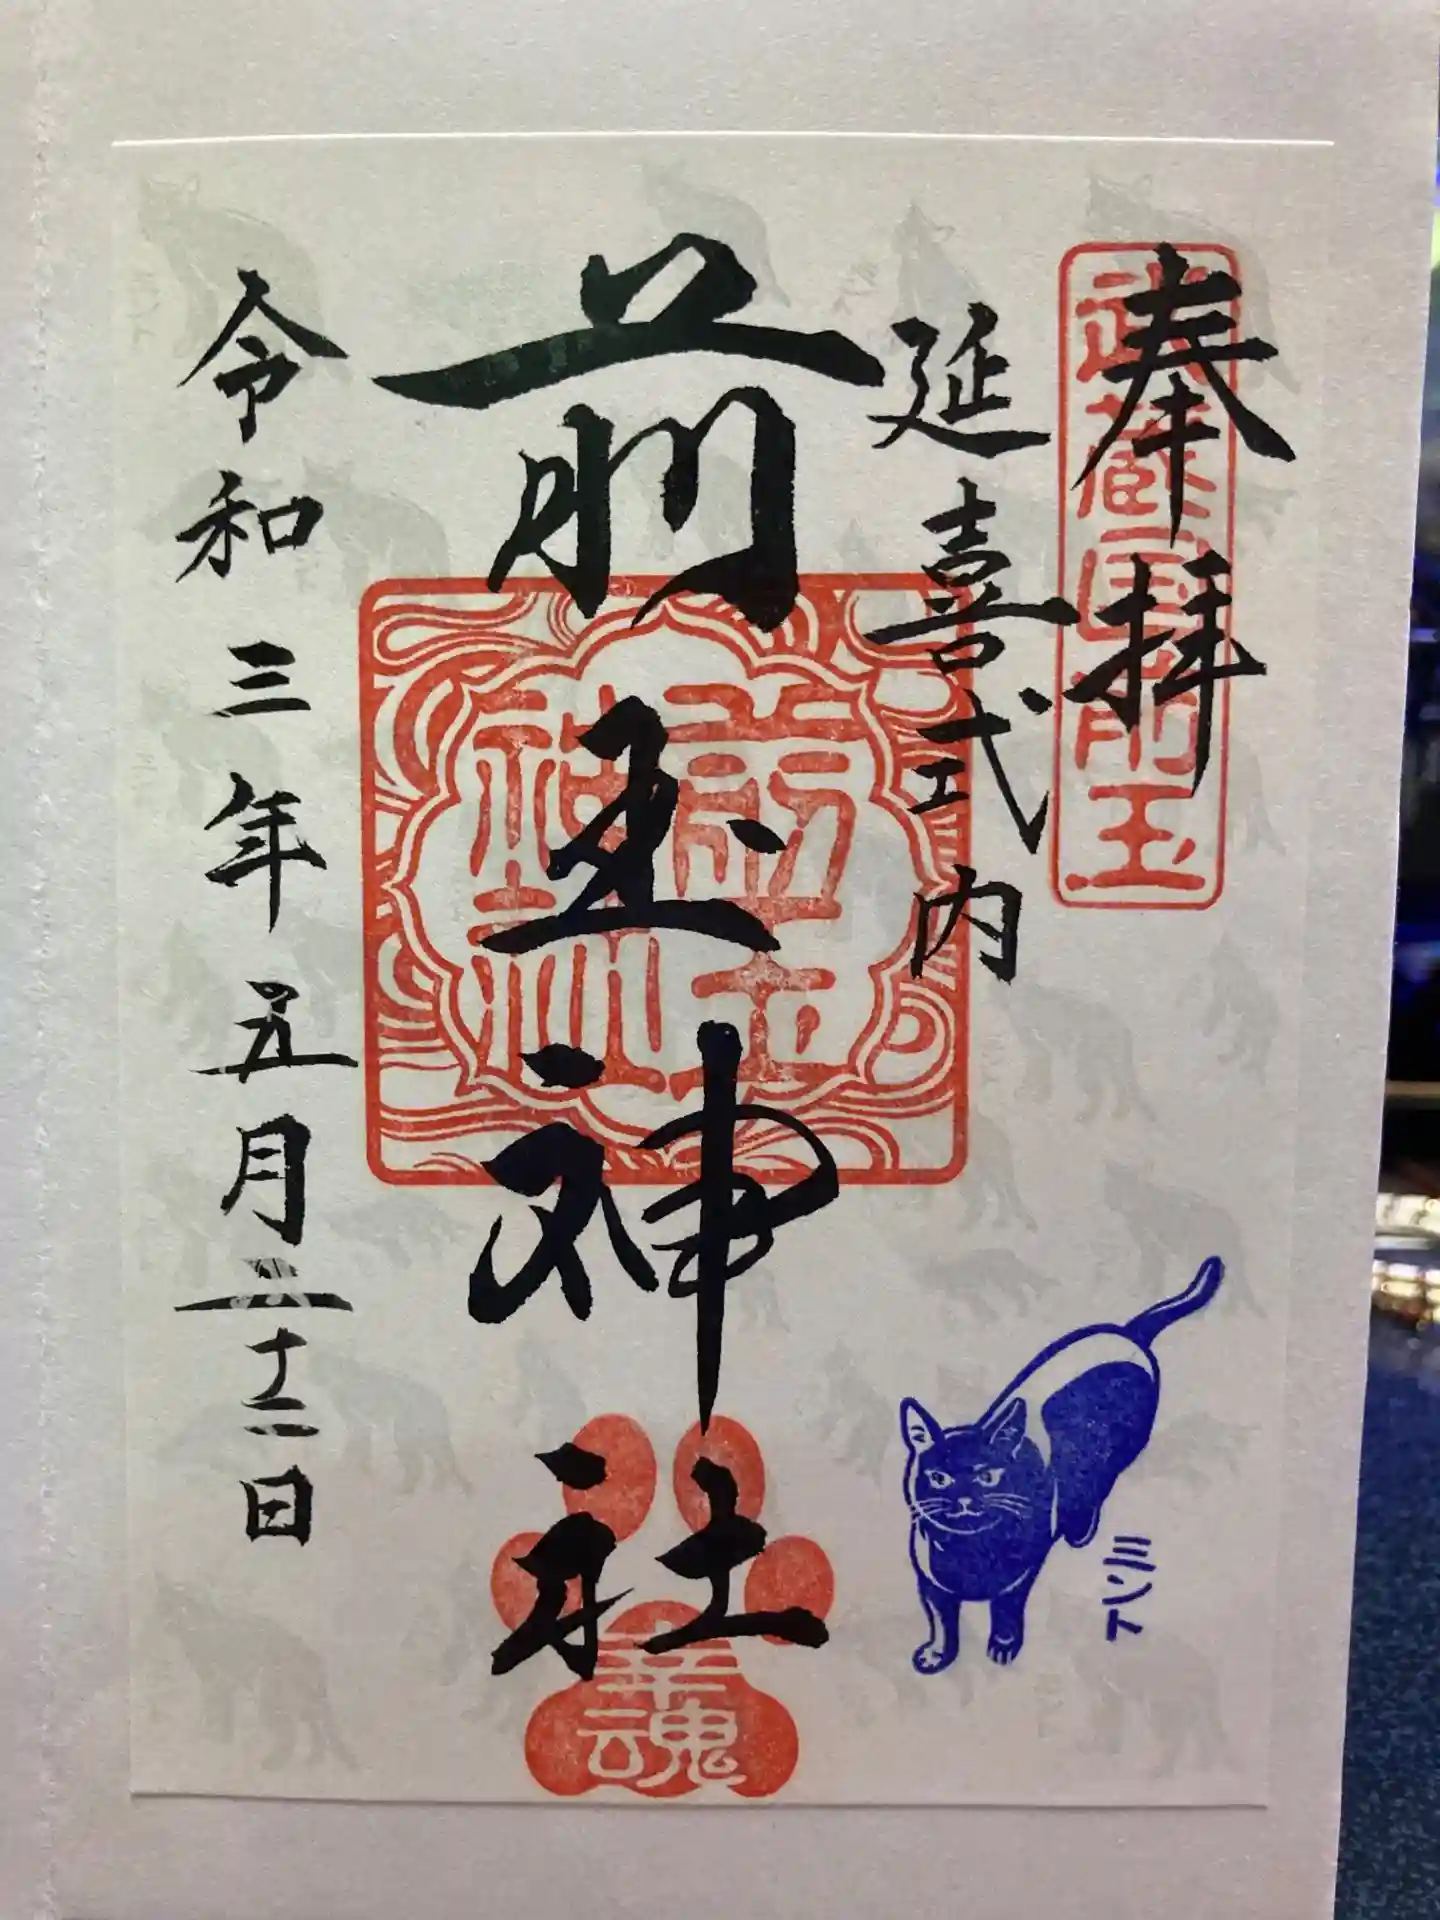 奉拝
武蔵国前玉
延喜式内
前玉神社
幸魂
ミント
令和三年五月二十二日